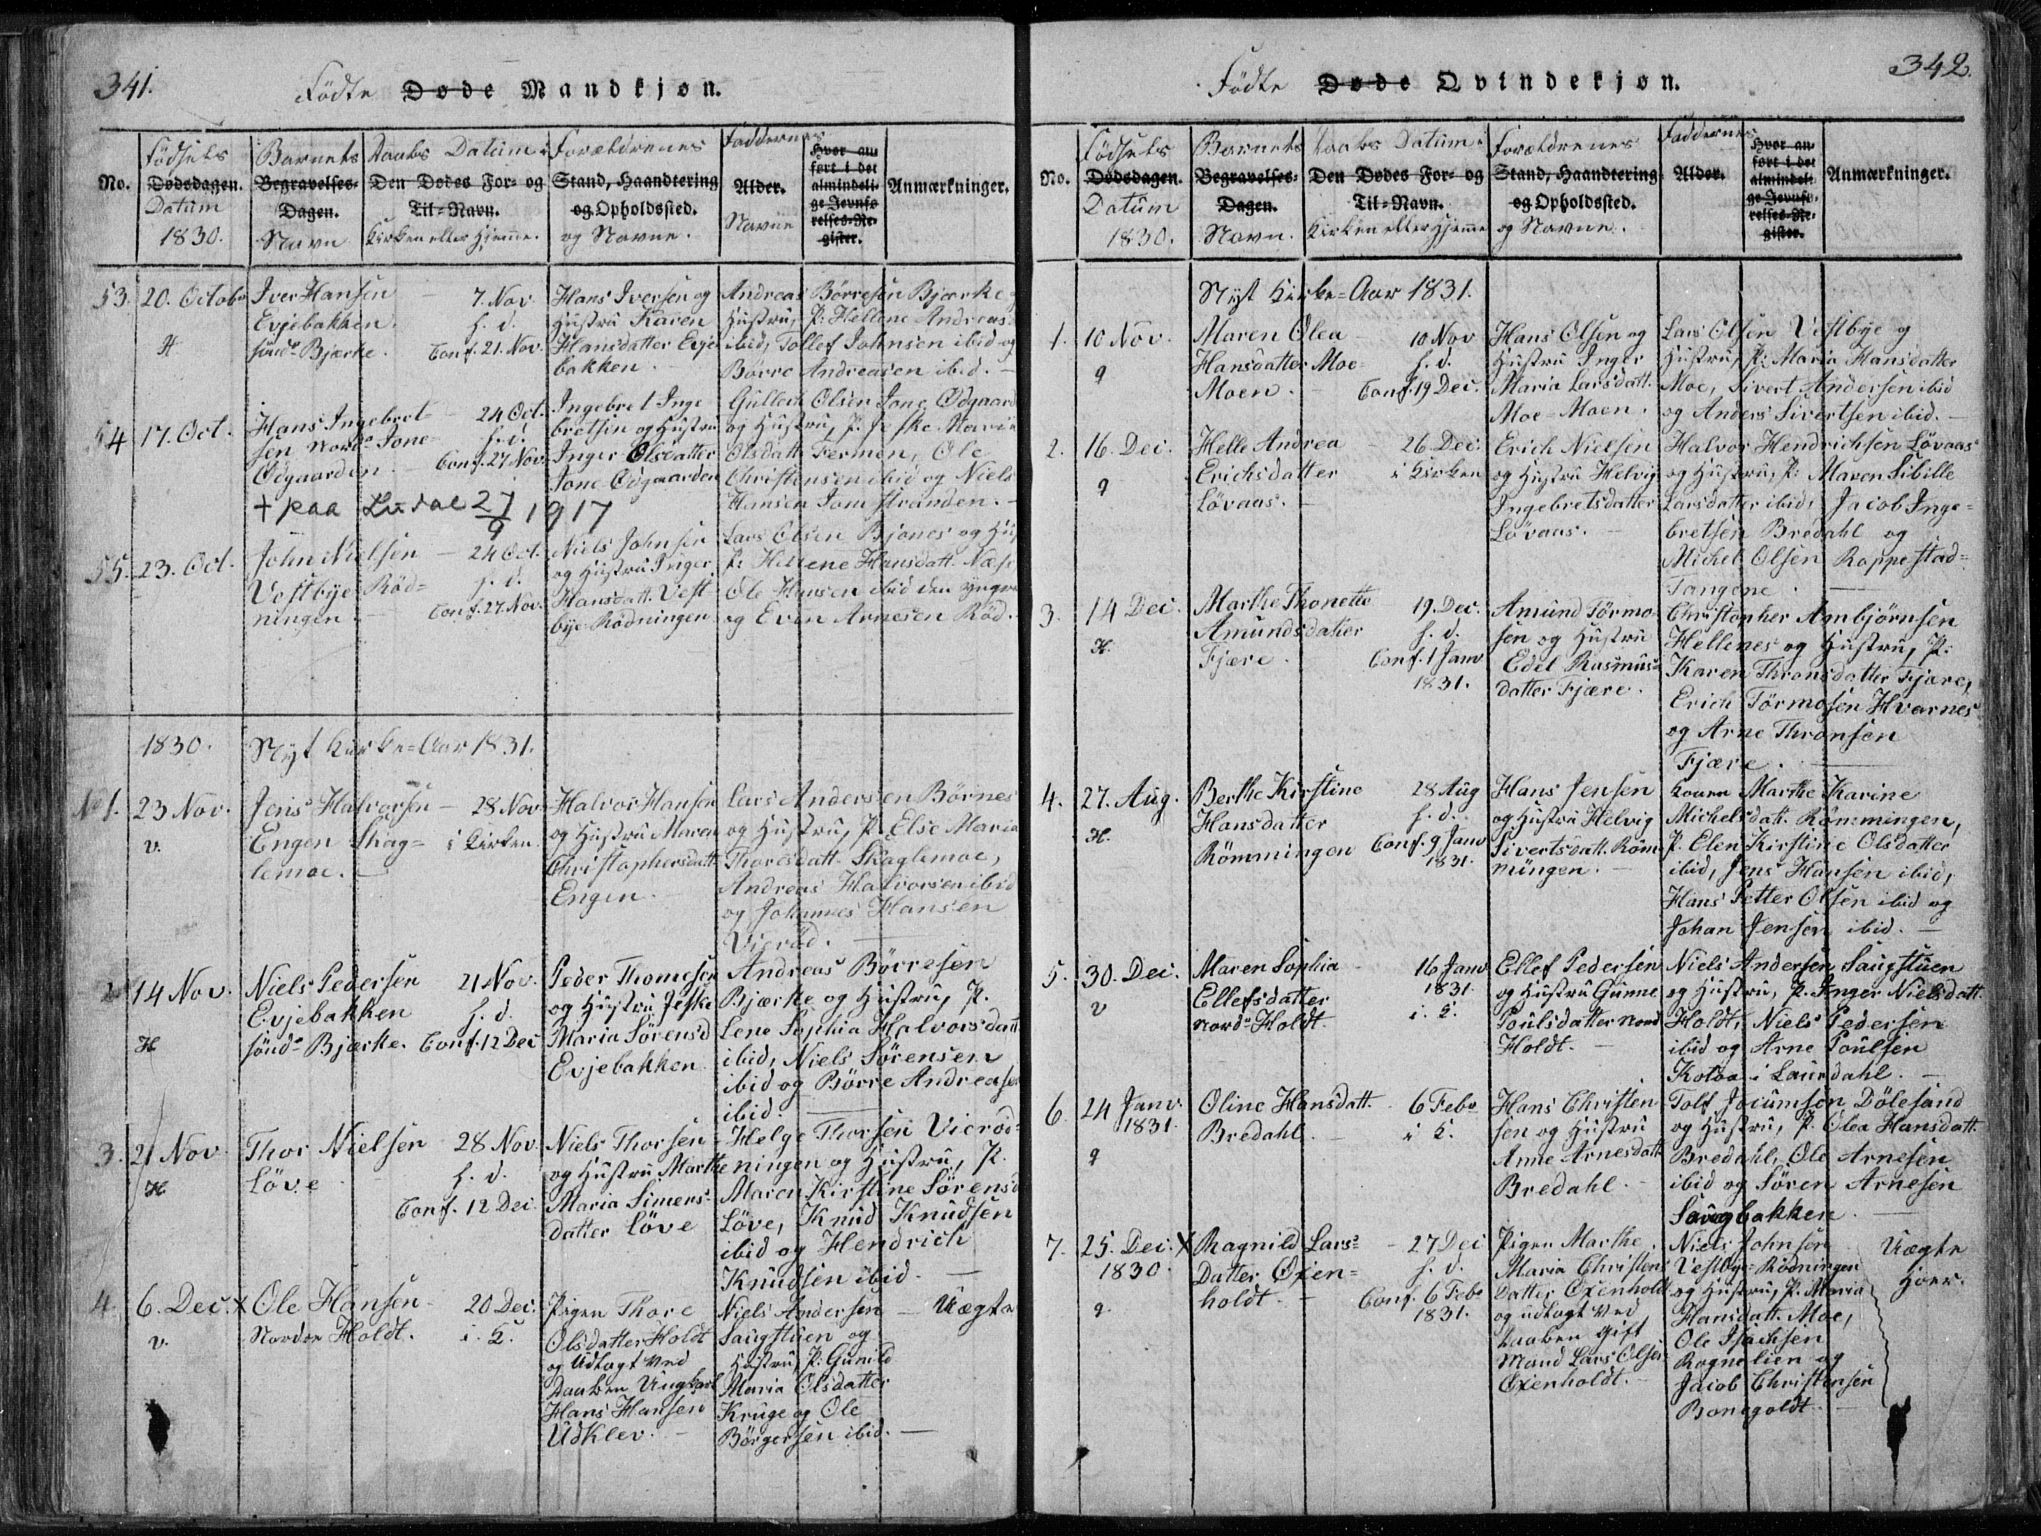 341.
Fødte Døde Mandkjøn.
No.
Fødsels
Dødsdagen.
Datum
1830.
Barnets
Begravelses-
Dagen.
Navn
Daabs Datum i
Den Dødes For- og
Til-Navn.
Kirken eller Hjemme.
Forældrenes
Stand, Haandtering
og Opholdssted.
og Navne.
Faddernes
Alder.
Navne
Hvor an-
ført i det
almindeli-
ge Jevnfø-
relses-Re-
gister.
Anmærkninger.
53.
20. Octobr
H
Iver Hansen
Evjebakken
sønd. Bjærke.
7. Nov.
h. d.
Conf. 21. Nov.
Hans Iversen og
Hustru Karen
Hansdatter Evje
bakken.
Andreas Børresen Bjærke
Hustru, P: Hellene Andreas
ibid, Tollef Johnsen ibid og
Børre Andreasen ibid. –
54
17. Oct.
Hans Ingebret-
sen Nord. Jone-
Odgaarden.
24 Oct.
h. d.
Conf. 27 Nov.
Ingebret Inge
bretsen og Hustru
Inger Olsdatter
Jone Odgaarden
Gullech Olsen Jone Odgaard
og Hustru, P. Jeske Maria
Olsdatt. Fermen, Ole
Christensen ibid og Niels
Hansen Jomstranden. –
+ paa Ludal 27/9 1917
55.
23. Oct.
John Nielsen
Vestbye Rød-
ningen.
24 Oct.
h. d.
Conf. 27. Nov.
Niels Johnsen
og Hustru Inger
Hansdatt. Vest
bye Rødningen
Lars Olsen Bjønes og Hus
P: Hellene Hansdatt. Næss
Ole Hansen ibid den yngre
og Even Arnesen Rød.
1830.
Nyt Kirke-Aar 1831.
No 1.
23 Nov.
v.
Jens Halvorsen
Engen Skag-
lemoe.
28 Nov
i Kirken.
Halvor Hansen
og Hustru Maren
Christophersdatt.
Engen.
Lars Andersen Børnes
og Hustru, P. Else Maria
Thoresdatt. Skaglemoe,
Andreas Halvorsen ibid
og Johannes Hansen
Vierød.
2
14 Nov.
H
Niels Pedersen
Evjebakken
sønd. Bjærke.
21 Nov.
h. d.
Conf. 12 Dec
Peder Thomesen
og Hustru Jeske
Maria Sørensd
Evjebakken
Andreas Børresen
Bjærke og Hustru, P.
Lene Sophia Halvorsdatt
ibid, Niels Sørensen
ibid og Børre Andreasen
ibid.
3.
21 Nov.
H
Thor Nielsen
Løve
28 Nov.
h. d.
Conf. 12 Dec.
Niels Thorsen
og Hustru Marthe
Maria Simens-
datter Løve
Helge Thorsen Vierød-
ningen og Hustru, P.
Maren Kirstine Sørensd
Løve, Knud Knudsen
ibid og Hendrich
Knudsen ibid. –
4
6. Dec. X
v.
Ole Hansen
Nordre Holdt.
20 Dec.
i. K.
Pigen Thore
Olsdatter Holdt
og Udlagt ved
Daaben Ungkarl
Hans Hansen
Udklev. –
Niels Andersen
Saugstuen og
Hustru, P: Gunild
Maria Olsdatter
Kruge og Ole
Børgersen ibid. –
Uægte
342.
Fødte Døde Qvindekjøn.
No.
Fødsels
Dødsdagen.
Datum
1830.
Barnets
Begravelses-
Dagen.
Navn.
Daabs Datum i
Den Dødes For- og
Til-Navn.
Kirken eller Hjemme
Forældrenes
Stand, Haandtering
og Opholdssted.
og Navne.
Faddernes
Alder.
Hvor an-
ført i det
almindeli-
ge Jevnfø-
relses-Re-
gister.
Anmærkninger.
Nyt Kirke-Aar 1831.
1.
10 Nov.
q
Maren Olea
Hansdatter Moe-
Moen.
10 Nov
h. d.
Conf. 19 Dec.
Hans Olsen og
Hustru Inger
Maria Larsdatt.
Moe-Moen.
Lars Olsen Vestbye og
Hustru, P: Maria Hansdatter
Moe, Sivert Andersen ibid
og Anders Sivertsen ibid. –
2.
16. Dec.
q
Helle Andrea
Erichsdatter
Løvaas. –
26 Dec.
i Kirken
Erich Nielsen
og Hustru Helvig
Ingebretsdatter
Løvaas. –
Halvor Hendrichsen Løvaas
og Hustru, P: Maren Sibille
Larsdatter ibid, Jacob Inge-
bretsen Bredahl og
Michel Olsen Roppestad-
Tangene. –
3.
14 Dec.
H.
Marthe Thonette
Amundsdatter
Fjære.
19. Dec.
h. d.
Conf. 1 Janv
1831.
Amund Tørmo-
sen og Hustru
Edel Rasmus-
datter Fjære.
Christopher Ambjørnsen
Hellenes og Hustru, P.
Karen Thronsdatter Fjære,
Erich Tørmosen Hvarnes
og Arne Thronsen
Fjære.
4.
27. Aug.
H.
Berthe Kirstine
Hansdatter
Rømmingen
28 Aug
h. d.
Conf. 9 Janv
1831.
Hans Jensen
og Hustru Helvig
Sivertsdatt. Røm-
mingen. –
Konen Marthe Karine
Michelsdatt. Rømmingen,
P. Elen Kirstine Olsdatter
ibid, Jens Hansen ibid,
Hans Petter Olsen ibid og
Johan Jensen ibid. –
5.
30. Dec.
v
Maren Sophia
Ellefsdatter
Nord. Holdt.
16 Janv
1831.
i. K.
Ellef Pedersen
og Hustru Gunne
Poulsdatter Nord
Holdt. –
Niels Andersen Saugstuen
og Hustru, P. Inger Nielsdatt.
Holdt, Niels Pedersen
ibid og Arne Poulsen
Kolaa i Laurdahl. –
6.
24 Janv.
1831.
q
Oline Hansdatt.
Bredahl. –
6 Febr
i K.
Hans Christen
sen og Hustru
Anne Arnesdatt.
Bredahl. –
Tolf Jocumsen Dølesand
og Hustru, P. Olea Hansdatt.
Bredahl, Ole Arnesen
ibid og Søren Arnesen
Saugbakken. –
7.
25. Dec. X
1830.
q.
Ragnild Lars-
Datter Oxen-
holdt. –
27 Dec
h. d.
Conf. 6 Febr
1831.
Pigen Marthe
Maria Christens
Datter Oxenholdt
og udlagt ved
Daaben gift
Mand Lars Olsen
Oxenholdt. –
Niels Johnsen
Vestbye-Rødningen
og Hustru, P. Maria
Hansdatt. Moe,
Ole Isachsen
Rognelien og
Jacob Christensen
Bonegoldt. –
Uægte
hoer.